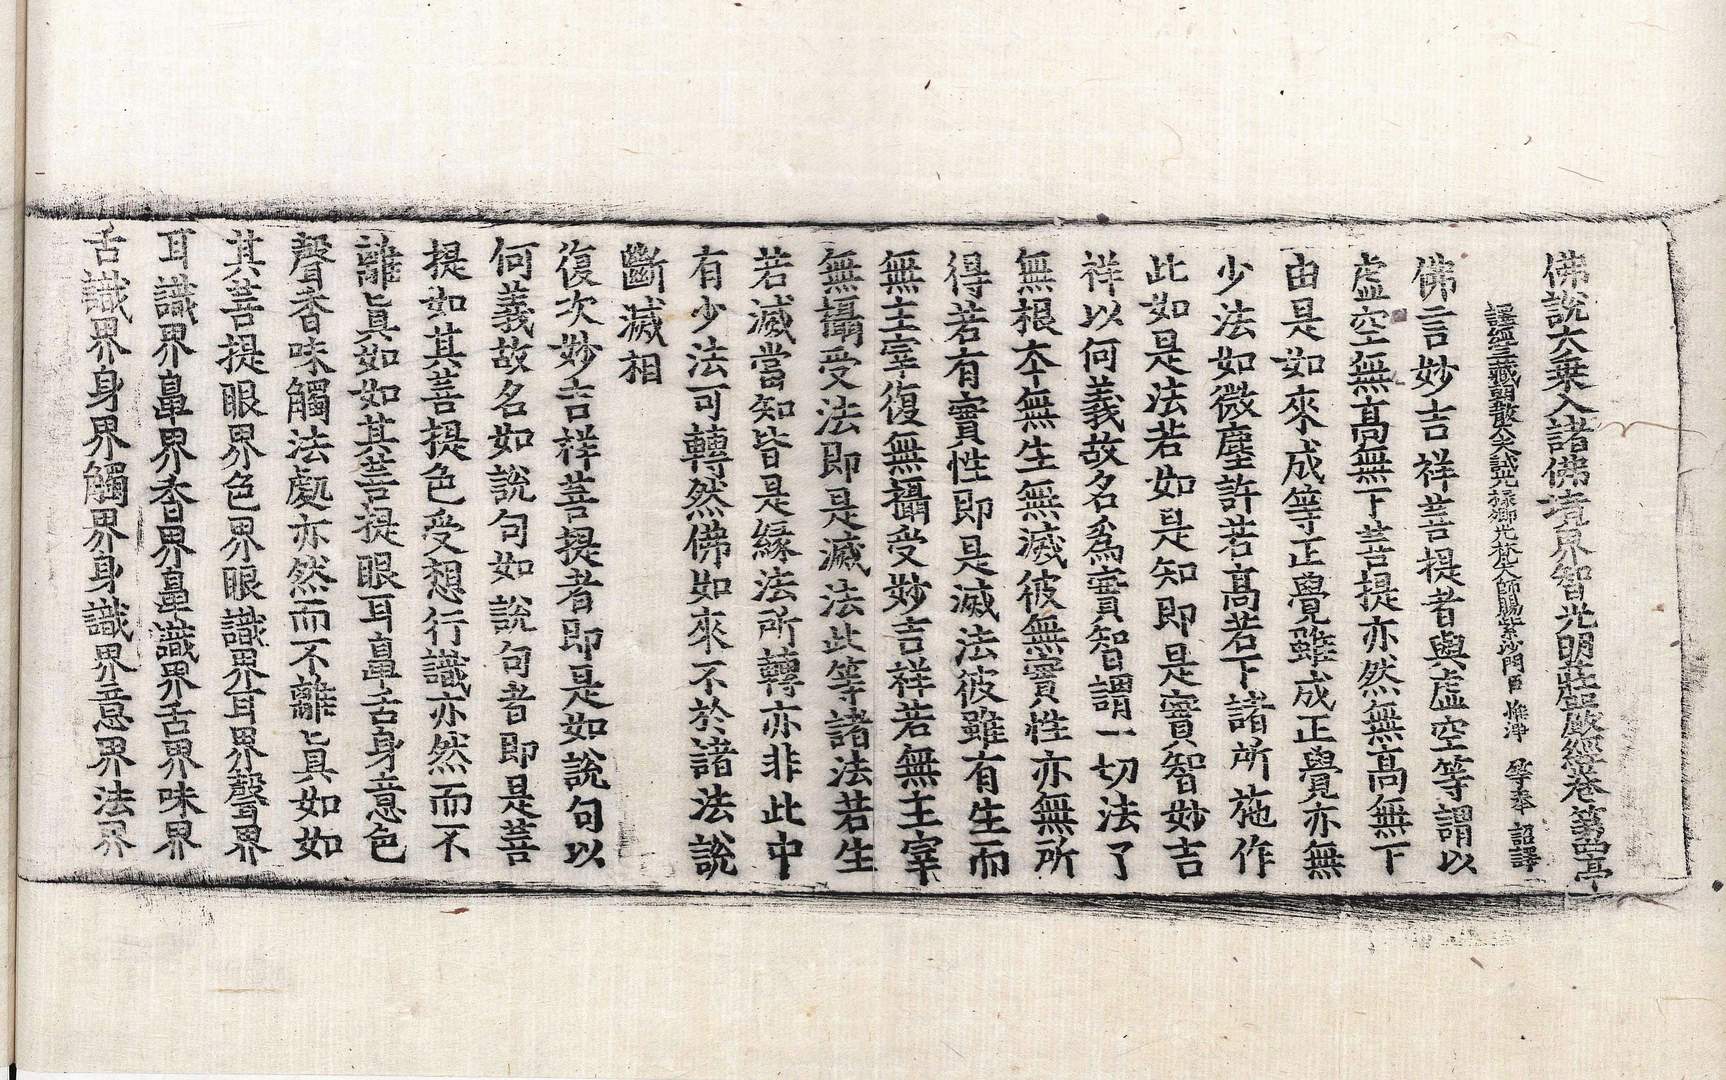 佛說大乗入諸佛境界智光明莊嚴經卷苐四 亭
譯經三藏朝散大夫試光祿卿光梵大師賜紫沙門臣惟淨 等奉 詔譯
佛言妙吉祥菩提者與虛空等謂以
虛空無髙無下菩提亦然無髙無下
由是如來成等正覺雖成正覺亦無
少法如微塵許若髙若下諸所施作
此如是法若如是知即是實智妙吉
祥以何義故名爲實智謂一切法了
無根夲無生無滅彼無實性亦無所
得若有實性即是滅法彼雖有生而
無主宰復無攝受妙吉祥若無主宰
無攝受法即是滅法此等諸法若生
若滅當知皆是縁法所轉亦非此中
有少法可轉然佛如來不於諸法說
斷滅相
復次妙吉祥菩提者即是如說句以
何義故名如說句如說句者即是菩
提如其菩提色受想行識亦然而不
離眞如如其菩提眼耳鼻舌身意色
聲香味觸法處亦然而不離眞如如
其菩提眼界色界眼識界耳界聲界
耳識界鼻界香界鼻識界舌界味界
舌識界身界觸界身識界意界法界